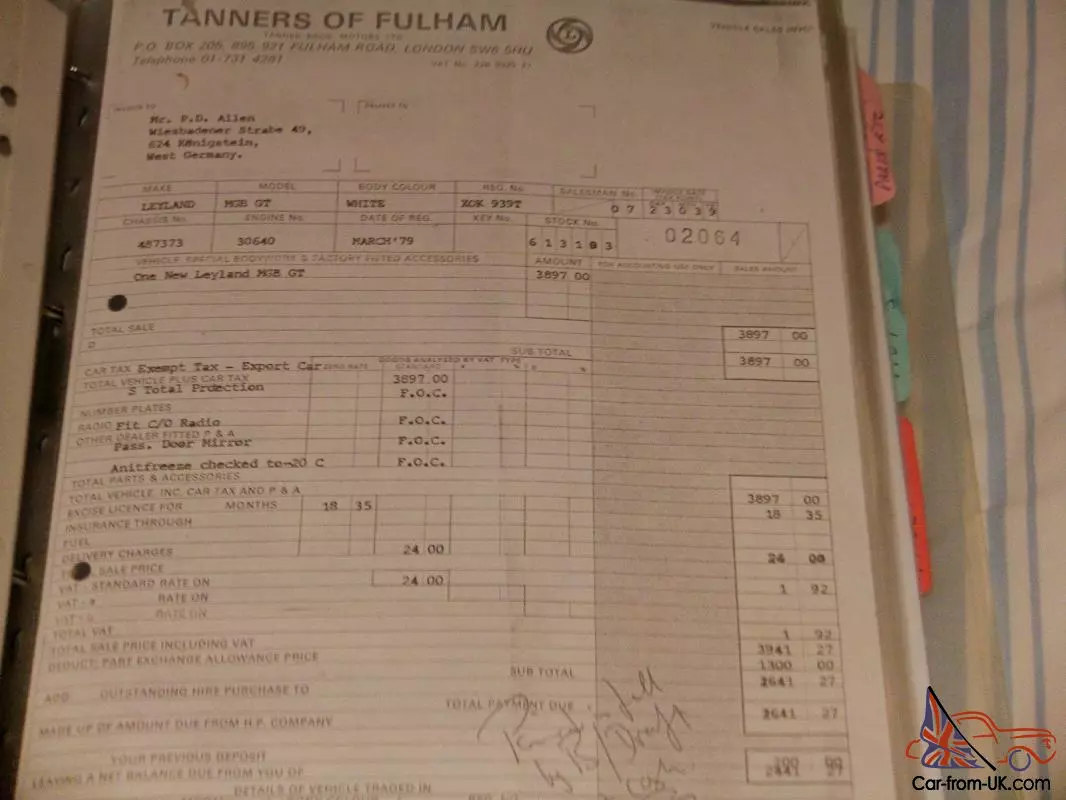 TANNERS OF FULHAM
P.O. BOX 205, 895-921 FULHAM ROAD, LONDON SW6 5HU
Telephone 01-731 4281
INVOICE TO
Mr. P.D. Allen
Wiesbadener Strabe 49,
624 Königstein,
West Germany.
MAKE MODEL BODY COLOUR REG. No. SALESMAN No. INVOICE DATE
LEYLAND MGB GT WHITE XOK 939T 07 23039
CHASSIS No. ENGINE No. DATE OF REG. KEY No. STOCK No.
487373 30640 MARCH '79 613183 02064
VEHICLE, SPECIAL BODYWORK & FACTORY FITTED ACCESSORIES AMOUNT FOR ACCOUNTING USE ONLY SALES AMOUNT
One New Leyland MGB GT 3897 00
TOTAL SALE 3897 00
SUB TOTAL 3897 00
CAR TAX Exempt Tax - Export Car ZERO RATE GOODS ANALYSED BY VAT TYPE STANDARD
TOTAL VEHICLE PLUS CAR TAX 3897.00
S Total Prdection F.O.C.
NUMBER PLATES
RADIO Fit C/O Radio F.O.C.
OTHER DEALER FITTED P & A
Pass. Door Mirror F.O.C.
Anitfreeze checked to-20 C F.O.C.
TOTAL PARTS & ACCESSORIES
TOTAL VEHICLE INC. CAR TAX AND P & A 3897 00
EXCISE LICENCE FOR MONTHS 18 35 18 35
INSURANCE THROUGH
FUEL
DELIVERY CHARGES 24 00 24 00
SALE PRICE
VAT - STANDARD RATE ON 24 00 1 92
VAT - RATE ON
VAT - RATE ON
TOTAL VAT 1 92
TOTAL SALE PRICE INCLUDING VAT 3941 27
DEDUCT: PART EXCHANGE ALLOWANCE PRICE 1300 00
SUB TOTAL 2641 27
ADD OUTSTANDING HIRE PURCHASE TO
TOTAL PAYMENT DUE 2641 27
MADE UP OF AMOUNT DUE FROM H.P. COMPANY
YOUR PREVIOUS DEPOSIT 200 00
LEAVING A NET BALANCE DUE FROM YOU OF 2441 27
DETAILS OF VEHICLE TRADED IN
Car-from-UK.com